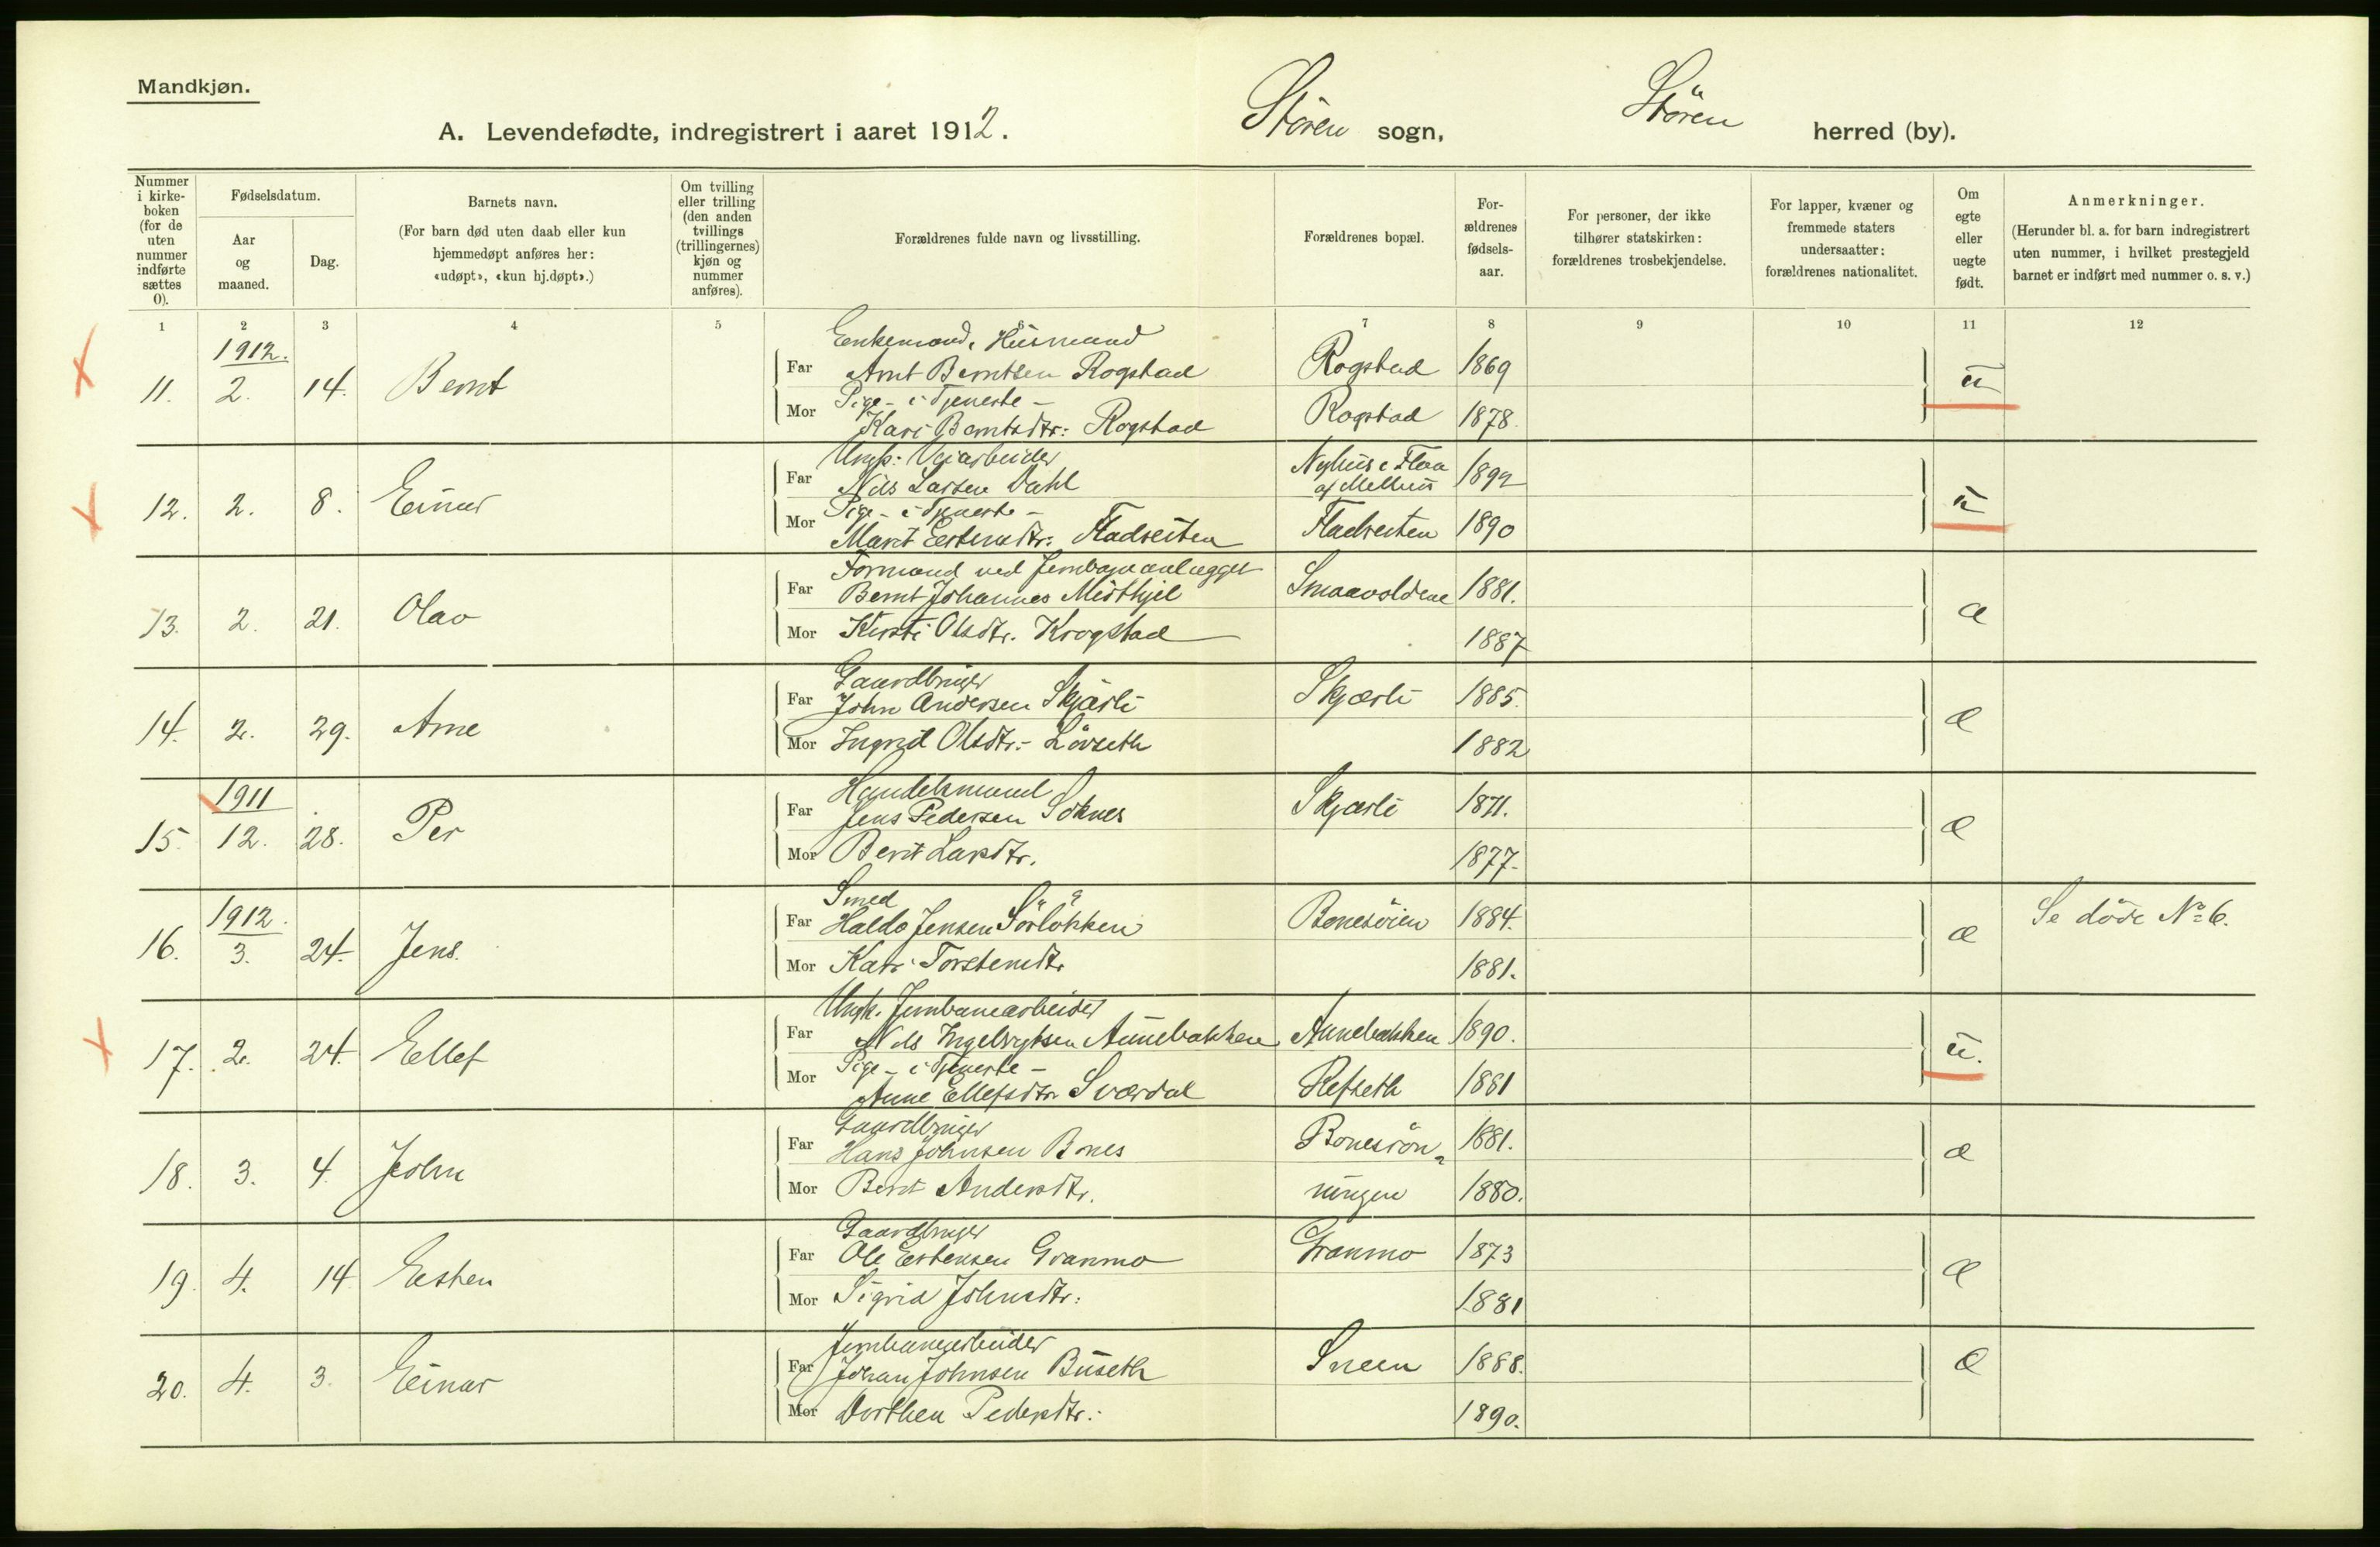 Mandkjøn.
A. Levendefødte, indregistrert i aaret 1912.
Støren sogn,
Støren herred (by).
Nummer i kirke-boken (for de uten nummer indførte sættes 0).
Fødselsdatum.
Aar og maaned.
Dag.
Barnets navn.
(For barn død uten daab eller kun hjemmedøpt anføres her: «udøpt», «kun hj.døpt».)
Om tvilling eller trilling (den anden tvillings (trillingernes) kjøn og nummer anføres).
Forældrenes fulde navn og livsstilling.
Forældrenes bopæl.
For-ældrenes fødsels-aar.
For personer, der ikke tilhører statskirken: forældrenes trosbekjendelse.
For lapper, kvæner og fremmede staters undersaatter: forældrenes nationalitet.
Om egte eller uegte født.
Anmerkninger.
(Herunder bl. a. for barn indregistrert uten nummer, i hvilket prestegjeld barnet er indført med nummer o. s. v.)
1 2 3 4 5 6 7 8 9 10 11 12
1912.
Enkemand, Husmand
11. 2. 14. Bernt Far Arnt Berntsen Rogstad Rogstad 1869 u
Pige - i Tjeneste -
Mor Kari Berntsdtr: Rogstad Rogstad 1878.
Ungk: Veiarbeider
12. 2. 8. Einar Far Nils Larsen Dahl Nyhus i Flaa af Melhus 1892 u
Pige - i Tjeneste -
Mor Marit Estensdtr: Fladseiten Fladseiten 1890
Formand ved Jernbaneanlægget
13. 2. 21. Olav Far Bernt Johannes Midthjel Smaavoldene 1881. æ
Mor Kirsti Olsdtr. Krogstad 1887
Gaardbruger
14. 2. 29. Arne Far John Andersen Skjærli Skjærli 1885. æ
Mor Ingrid Olsdtr.- Løvseth 1882
1911
Handelsmand
15. 12. 28. Per Far Jens Pedersen Soknes Skjærli 1871. æ
Mor Berit Larsdtr. 1877.
1912.
Smed
16. 3. 24. Jens. Far Haldo Jensen Sörlökken Bonesöien 1884. æ Se döde No 6.
Mor Kari Torstensdtr 1881.
Ungk. Jernbanearbeider
17. 2. 24. Ellef Far Nils Ingebrigtsen Aunebakken Aunebakken 1890. u.
Pige - i Tjeneste -
Mor Anne Ellefsdtr Sværdal Refseth 1881
Gaardbruger
18. 3. 4. John Far Hans Johnsen Bones Bonesrön- 1881. æ
Mor Berit Andersdtr. ningen 1880.
Gaardbruger
19. 4. 14. Eesten Far Ole Estensen Granmo Granmo 1873 æ
Mor Sigrid Johnsdtr: 1881
Jernbanearbeider
20. 4. 3. Einar Far Johan Johnsen Buseth Sneen 1888. æ
Mor Dorthea Pedersdtr: 1890.